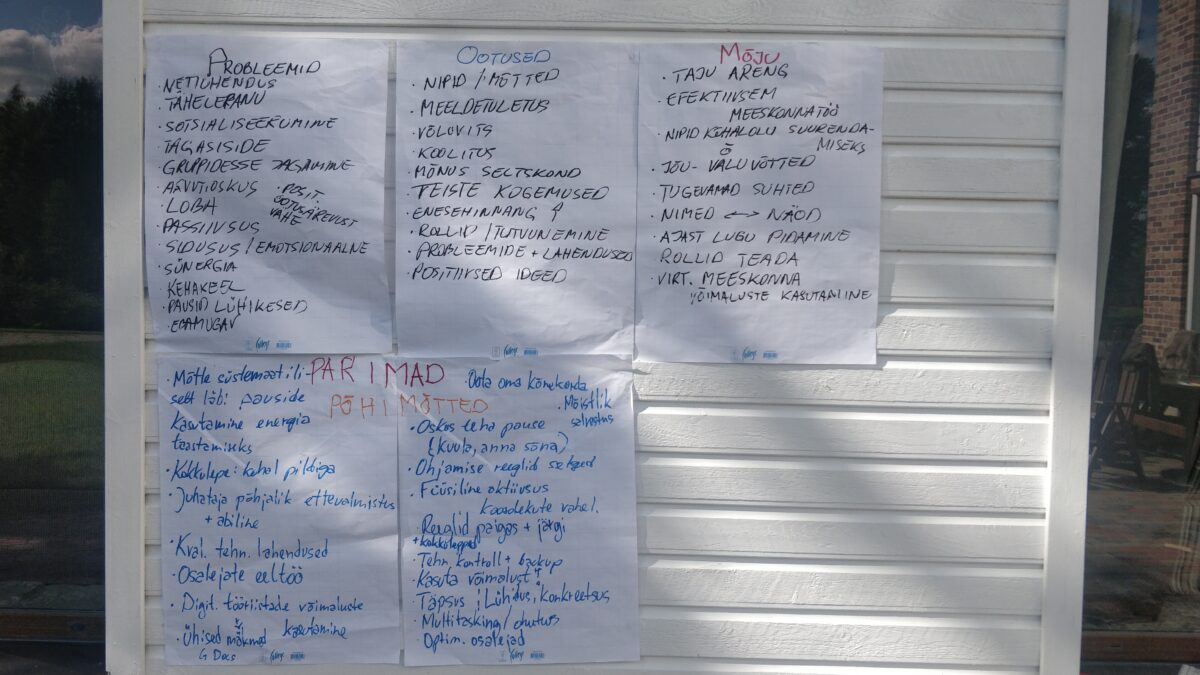 PROBLEEMID
· NETIÜHENDUS
· TÄHELEPANU
· SOTSIALISEERUMINE
· TAGASISIDE
· GRUPIDESSE JAGAMINE
· ARVUTIOSKUS
· POSIT.
OOTUSÄREVUST
VÄHE
· LOBA
· PASSIIVSUS
· SIDUSUS / EMOTSIONAALNE
· SÜNERGIA
· KEHAKEEL
· PAUSID LÜHIKESED
· EBAMUGAV
OOTUSED
· NIPID / MÕTTED
· MEELDETULETUS
· VÕLUVITS
· KOOLITUS
· MÕNUS SELTSKOND
· TEISTE KOGEMUSED
· ENESEHINNANG
· ROLLID / TUTVUNEMINE
· PROBLEEMIDE + LAHENDUSED
· POSITIIVSED IDEED
MÕJU
· TAJU ARENG
· EFEKTIIVSEM
MEESKONNATÖÖ
· NIPID KOHALOLU SUURENDA-
MISEKS
· JÕU- VALUVÕTTED
Õ
· TUGEVAMAD SUHTED
· NIMED <--> NÄOD
· AJAST LUGU PIDAMINE
· ROLLID TEADA
· VIRT. MEESKONNA
VÕIMALUSTE KASUTAMINE
PARIMAD
PÕHIMÕTTED
· Mõtle süstemaatili-
selt läbi pauside
kasutamine energia
taastamiseks
· Kokkulepe: kohal pildiga
· Juhataja põhjalik ettevalmistus
+ abiline
· Kval. tehn. lahendused
· Osalejate eeltöö
· Digit. tööriistade võimaluste
kasutamine
· Ühised märkmed
G Docs
· Oota oma kõnekorda
· Mõistlik
salvestus
· Oskus teha pause
(kuula, anna sõna)
· Ohjamise reeglid selged
· Füüsiline aktiivsus
koosolekute vahel.
· Reeglid paigas + järgi
+ kokkulepped
· Tehn. kontroll + backup
· Kasuta võimalust
· Täpsus ; Lühidus, konkreetsus
· Multitasking / ohutus
· Optim. osalejad